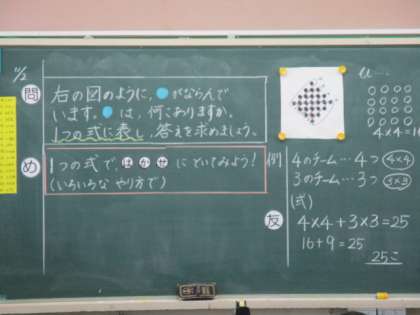 11/2
問
右の図のように、●がならんで
います。●は、何こありますか。
1つの式に表し、答えを求めましょう。
め
1つの式で、はかせにといてみよう!
(いろいろな やり方で)
例
4のチーム…4つ 4×4
3のチーム…3つ 3×3
(式)
友
4×4+3×3=25
16+9=25
25こ
4×4=16